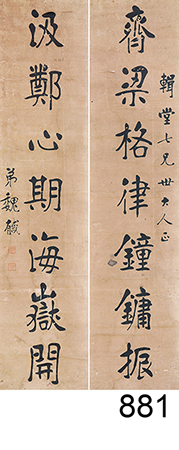 輯堂七兄世大人正
齊梁格律鐘鏞振
汲鄭心期海嶽開
弟魏鍼
881